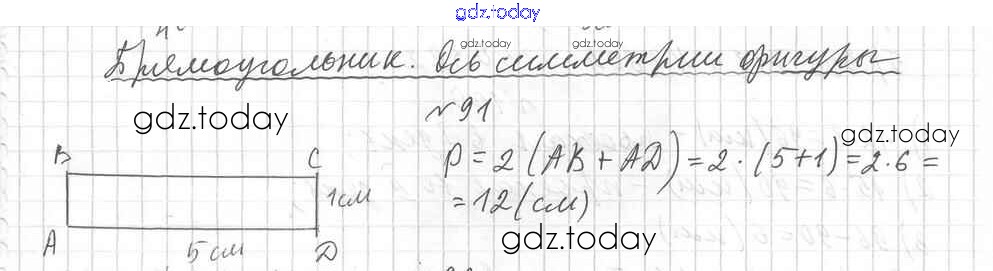 gdz.today
gdz.today gdz.today
Прямоугольник. Ось симметрии фигуры
gdz.today
№91.
gdz.today
B C
P = 2 (AB + AD) = 2 · (5+1) = 2 · 6 =
1 см
= 12 (см)
gdz.today
A 5 см D